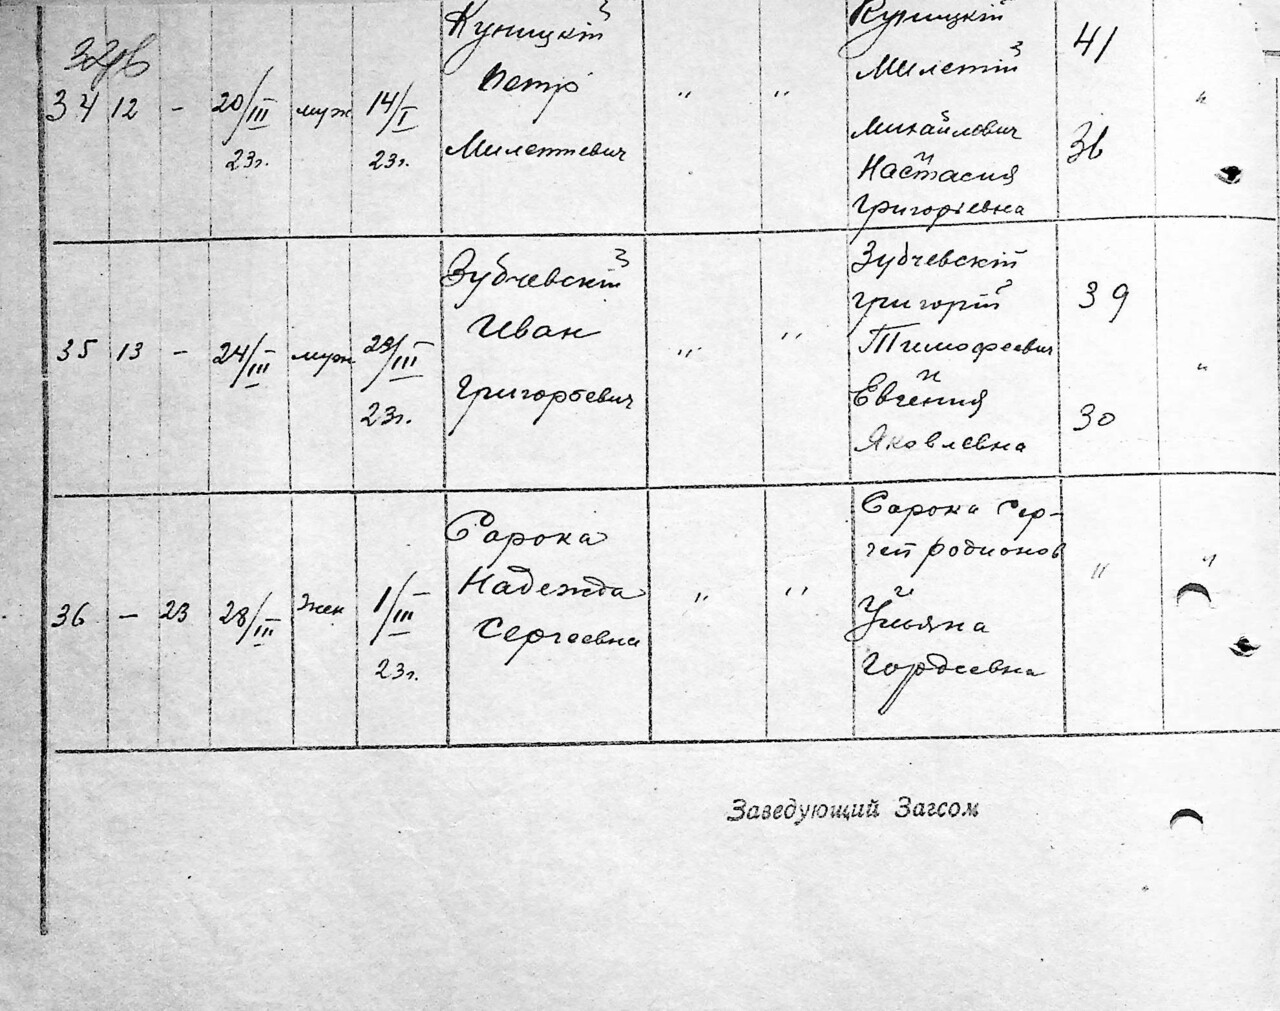 34 12 - 20/III 23г. муж 14/I 23г.
Куницкій
Петр
Милетиевич
" "
Куницкій
Милетій
Михайлович
и
Настасия
Григорьевна
41
36
"
35 13 - 24/III муж 23/III 23г.
Зубчевскій
Иван
Григорьевич
" "
Зубчевскій
Григорій
Тимофеевич
и
Евгения
Яковлевна
39
30
"
36 - 23 28/III жен 1/III 23г.
Сарока
Надежда
Сергеевна
" "
Сарока Сер-
гей Родионов
и
Ульяна
Гордеевна
" "
Заведующий Загсом